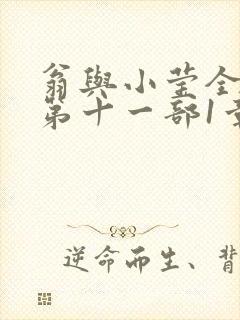 翁與小莹全
第十一部1章
逆命而生、背